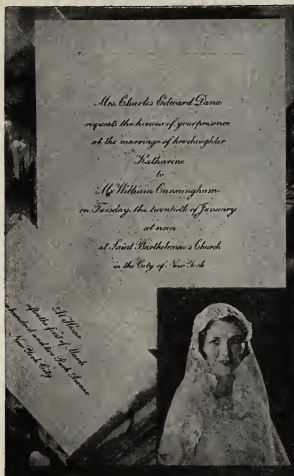 Mrs. Charles Edward Dana
requests the honour of your presence
at the marriage of her daughter
Katharine
to
Mr. William Cunningham
on Tuesday, the twentieth of January
at noon
at Saint Bartholomew's Church
in the City of New York
At Home
after the first of March
hundred and two Park Avenue
New York City